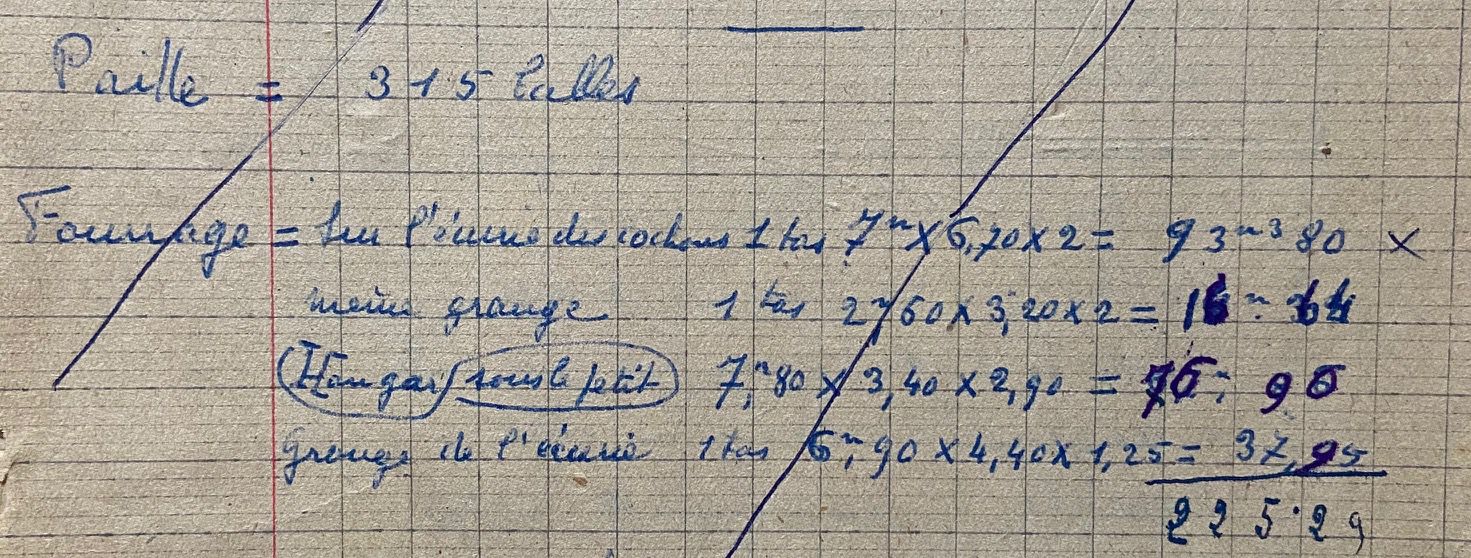 Paille = 315 balles
Fourrage = Sur l'écurie des cochons 1 tas 7m × 6,70 × 2 = 93m3 80 ×
même grange 1 tas 2m,60 × 3,20 × 2 = 16m 64
Hangar sous le petit 7,m80 × 3,40 × 2,90 = 76m, 90
Grange de l'écurie 1 tas 6m,90 × 4,40 × 1,25 = 37,95
225.29